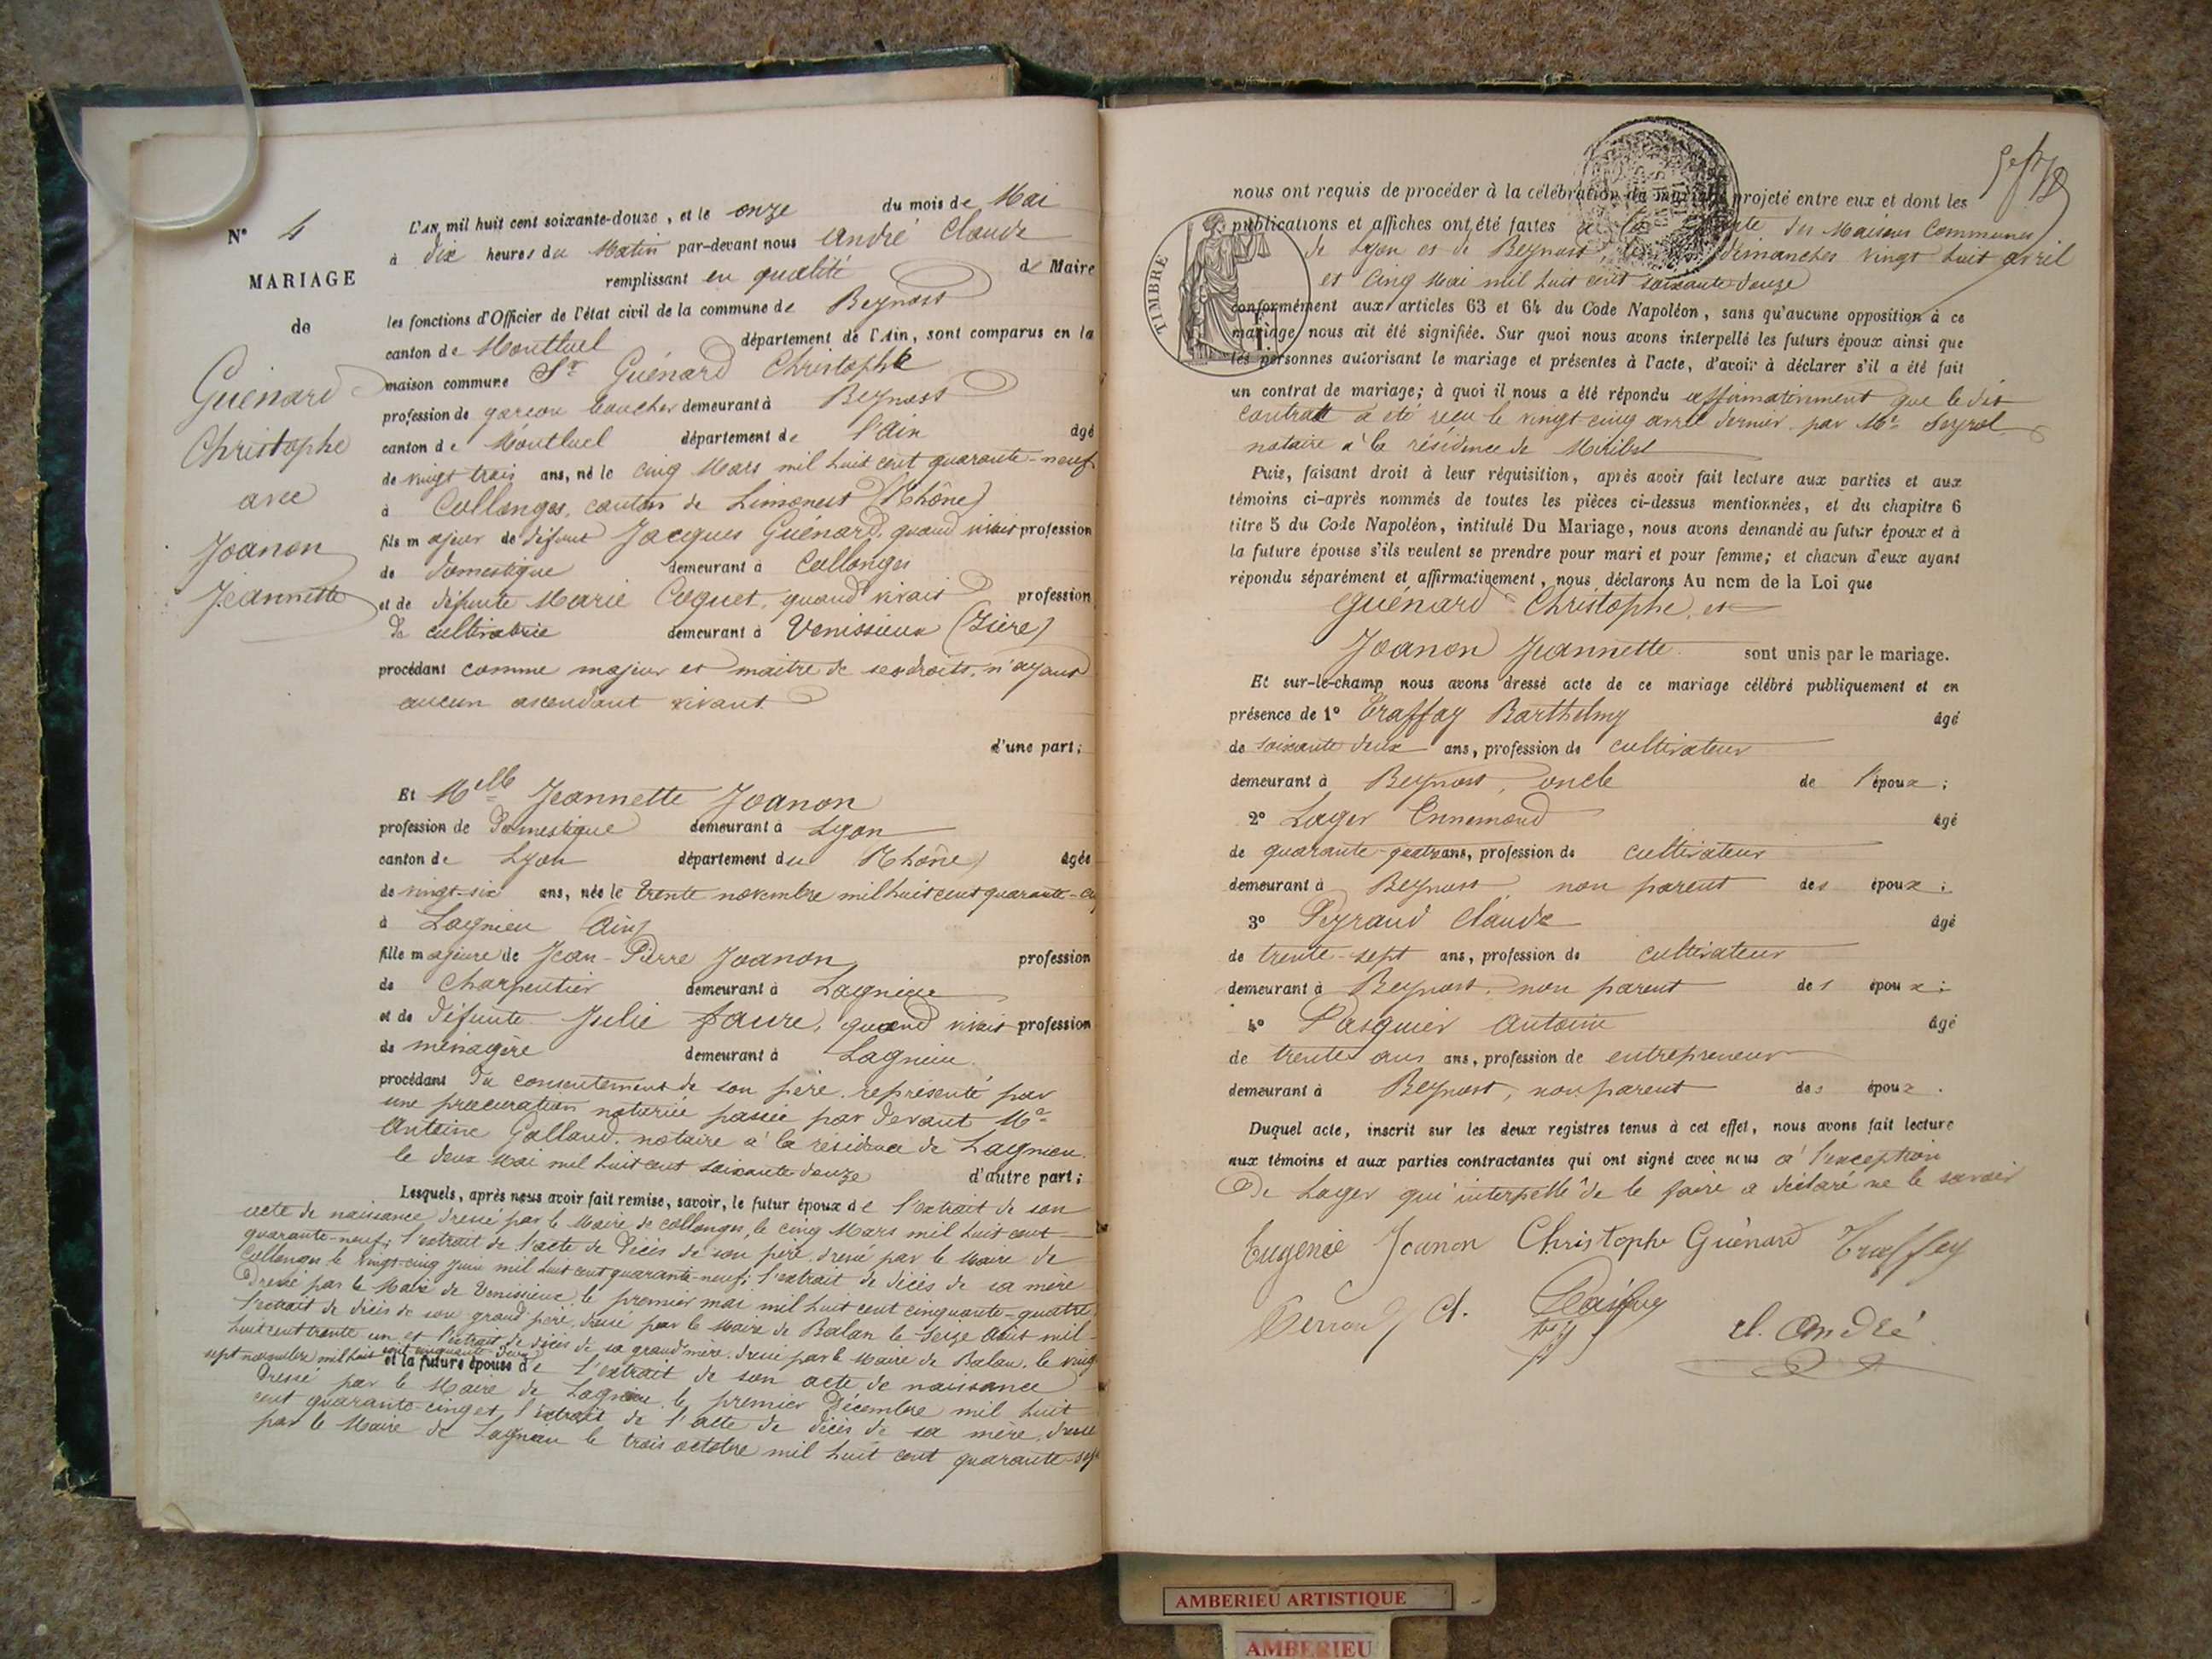 N° 4
MARIAGE
de
Guénard
Christophe
avec
Joanon
Jeannette
L'AN mil huit cent soixante-douze, et le onze du mois de Mai
à dix heures du Matin par-devant nous André Claude
remplissant en qualité de Maire
les fonctions d'Officier de l'état civil de la commune de Beynost
canton de Montluel département de l'Ain, sont comparus en la
maison commune Sr Guénard Christophe
profession de garçon boucher demeurant à Beynost
canton de Montluel département de l'Ain âgé
de vingt trois ans, né le cinq Mars mil huit cent quarante-neuf
à Collonges, canton de Limonest (Rhône)
fils majeur de défunt Jacques Guénard, quand vivait profession
de domestique demeurant à Collonges
et de défunte Marie Coquet, quand vivait profession
de cultivatrice demeurant à Venissieux (Isère)
procédant comme majeur et maître de ses droits, n'ayant
aucun ascendant vivant
d'une part;
Et Melle Jeannette Joanon
profession de Domestique demeurant à Lyon
canton de Lyon département du Rhône âgée
de vingt-six ans, née le trente novembre mil huit cent quarante-
à Lagnieu (Ain)
fille majeure de Jean-Pierre Joanon profession
de Charpentier demeurant à Lagnieu
et de défunte Julie Faure, quand vivait profession
de ménagère demeurant à Lagnieu
procédant du consentement de son père représenté par
une procuration notariée passée par devant Me
Antoine Galland, notaire à la résidence de Lagnieu
le deux Mai mil huit cent soixante douze d'autre part;
Lesquels, après nous avoir fait remise, savoir, le futur époux de l'extrait de son
acte de naissance dressé par le Maire de Collonges, le cinq Mars mil huit cent
quarante-neuf; l'extrait de l'acte de décès de son père dressé par le Maire de
Collonges le vingt-cinq Juin mil huit cent quarante-neuf; l'extrait de décès de sa mère
dressé par le Maire de Venissieux le premier mai mil huit cent cinquante-quatre
l'extrait de décès de son grand père, dressé par le Maire de Balan le seize Août mil
huit cent trente un et l'extrait de décès de sa grand'mère dressé par le Maire de Balan, le vingt
sept novembre mil huit cent cinquante deux
et la future épouse de l'extrait de son acte de naissance
dressé par le Maire de Lagnieu, le premier Décembre mil huit
cent quarante-cinq et l'extrait de l'acte de décès de sa mère, dressé
par le Maire de Lagnieu le trois octobre mil huit cent quarante-sept
nous ont requis de procéder à la célébration du mariage projeté entre eux et dont les
publications et affiches ont été faites à la porte des Maisons Communes
de Lyon et de Beynost, les dimanches vingt huit avril
et cinq Mai mil huit cent soixante-douze
TIMBRE
conformément aux articles 63 et 64 du Code Napoléon, sans qu'aucune opposition à ce
mariage nous ait été signifiée. Sur quoi nous avons interpellé les futurs époux ainsi que
les personnes autorisant le mariage et présentes à l'acte, d'avoir à déclarer s'il a été fait
un contrat de mariage; à quoi il nous a été répondu affirmativement que le dit
contrat a été reçu le vingt cinq avril dernier par Me
notaire à la résidence de Miribel
Puis, faisant droit à leur réquisition, après avoir fait lecture aux parties et aux
témoins ci-après nommés de toutes les pièces ci-dessus mentionnées, et du chapitre 6
titre 5 du Code Napoléon, intitulé Du Mariage, nous avons demandé au futur époux et à
la future épouse s'ils veulent se prendre pour mari et pour femme; et chacun d'eux ayant
répondu séparément et affirmativement, nous déclarons Au nom de la Loi que
Guénard Christophe et
Joanon Jeannette sont unis par le mariage.
Et sur-le-champ nous avons dressé acte de ce mariage célébré publiquement et en
présence de 1° Traffay Barthelmy âgé
de soixante deux ans, profession de cultivateur
demeurant à Beynost, oncle de l'époux;
2° Lager Ennemond âgé
de quarante-quatre ans, profession de cultivateur
demeurant à Beynost non parent des époux;
3° Peyraud Claude âgé
de trente-sept ans, profession de cultivateur
demeurant à Beynost, non parent des époux;
4° Pasquier Antoine âgé
de trente ans ans, profession de entrepreneur
demeurant à Beynost, non parent des époux.
Duquel acte, inscrit sur les deux registres tenus à cet effet, nous avons fait lecture
aux témoins et aux parties contractantes qui ont signé avec nous à l'exception
de Lager qui interpellé de le faire a déclaré ne le savoir
Eugenie Joanon Christophe Guénard Traffay
Cl. André
AMBERIEU ARTISTIQUE
AMBERIEU